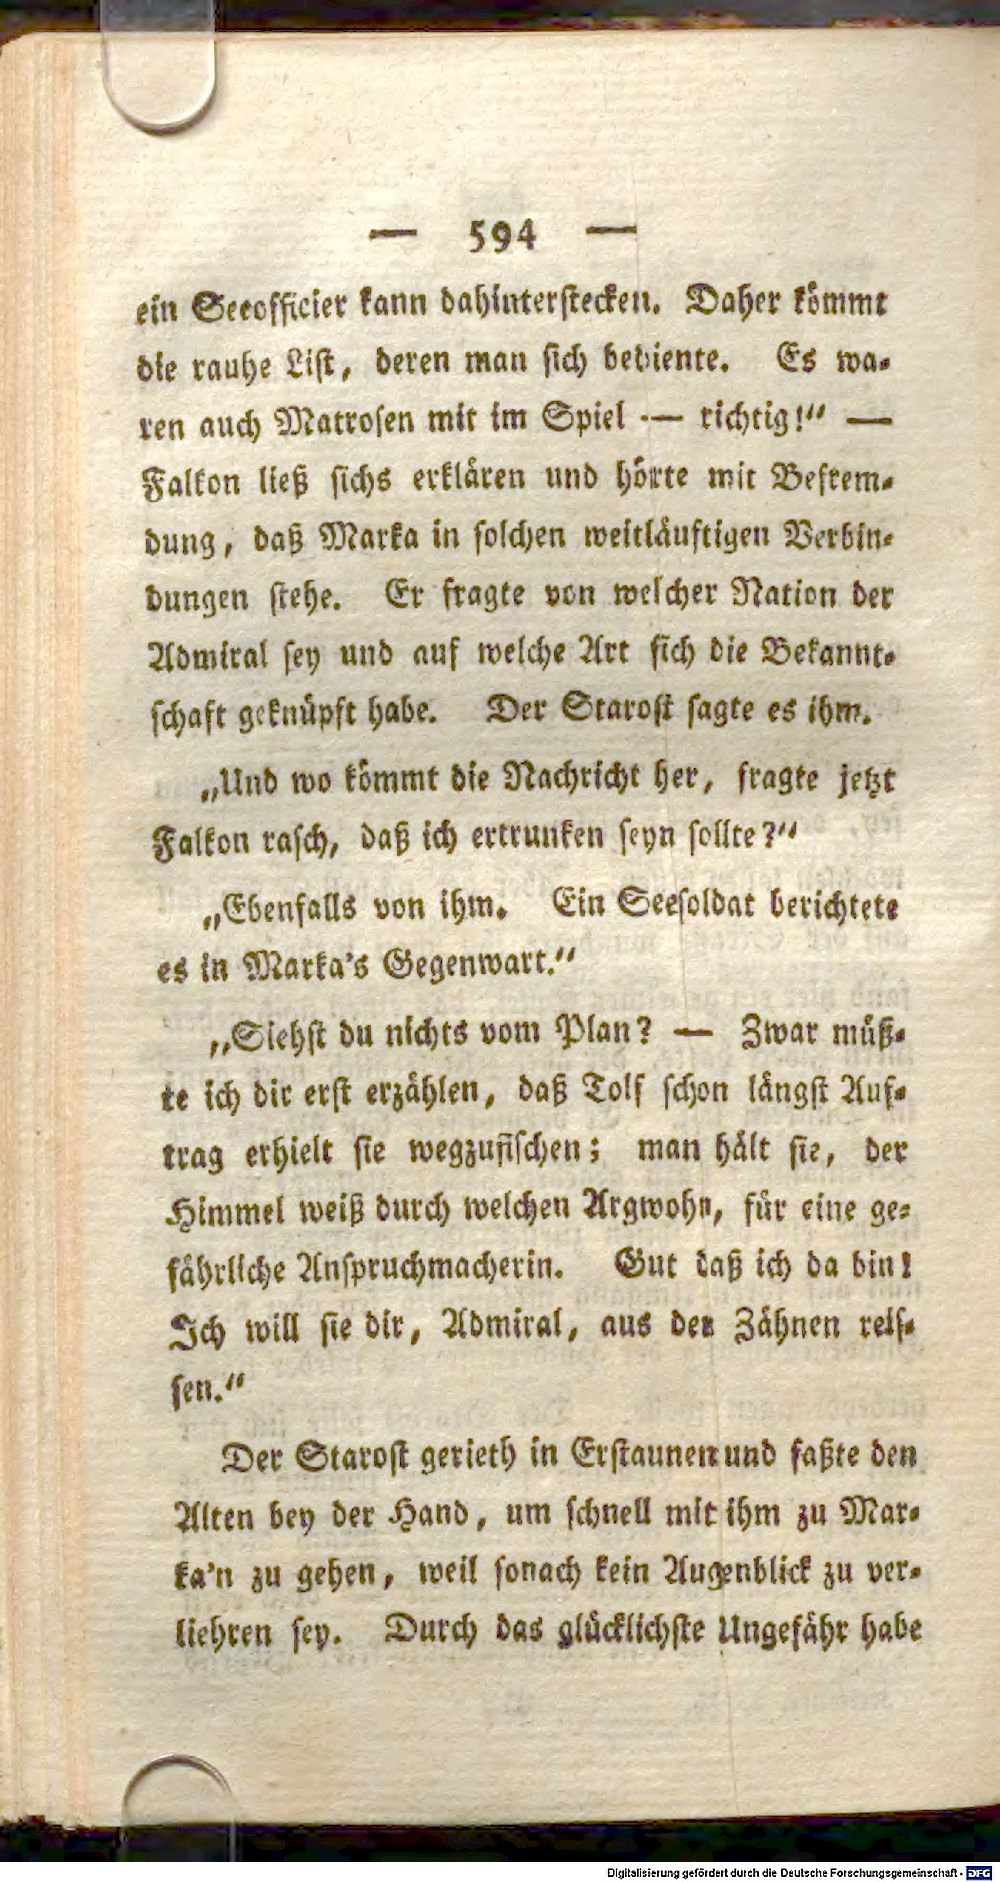 — 594 —
ein Seeofficier kann dahinterstecken. Daher kömmt
die rauhe List, deren man sich bediente. Es wa-
ren auch Matrosen mit im Spiel — richtig!“ —
Falkon ließ sichs erklären und hörte mit Befrem-
dung, daß Marka in solchen weitläuftigen Verbin-
dungen stehe. Er fragte von welcher Nation der
Admiral sey und auf welche Art sich die Bekannt-
schaft geknüpft habe. Der Starost sagte es ihm.
„Und wo kömmt die Nachricht her, fragte jetzt
Falkon rasch, daß ich ertrunken seyn sollte?“
„Ebenfalls von ihm. Ein Seesoldat berichtete
es in Marka's Gegenwart.“
„Siehst du nichts vom Plan? — Zwar müß-
te ich dir erst erzählen, daß Tolf schon längst Auf-
trag erhielt sie wegzufischen; man hält sie, der
Himmel weiß durch welchen Argwohn, für eine ge-
fährliche Anspruchmacherin. Gut daß ich da bin!
Ich will sie dir, Admiral, aus den Zähnen reis-
sen.“
Der Starost gerieth in Erstaunen und faßte den
Alten bey der Hand, um schnell mit ihm zu Mar-
ka'n zu gehen, weil sonach kein Augenblick zu ver-
liehren sey. Durch das glücklichste Ungefähr habe
Digitalisierung gefördert durch die Deutsche Forschungsgemeinschaft - DFG